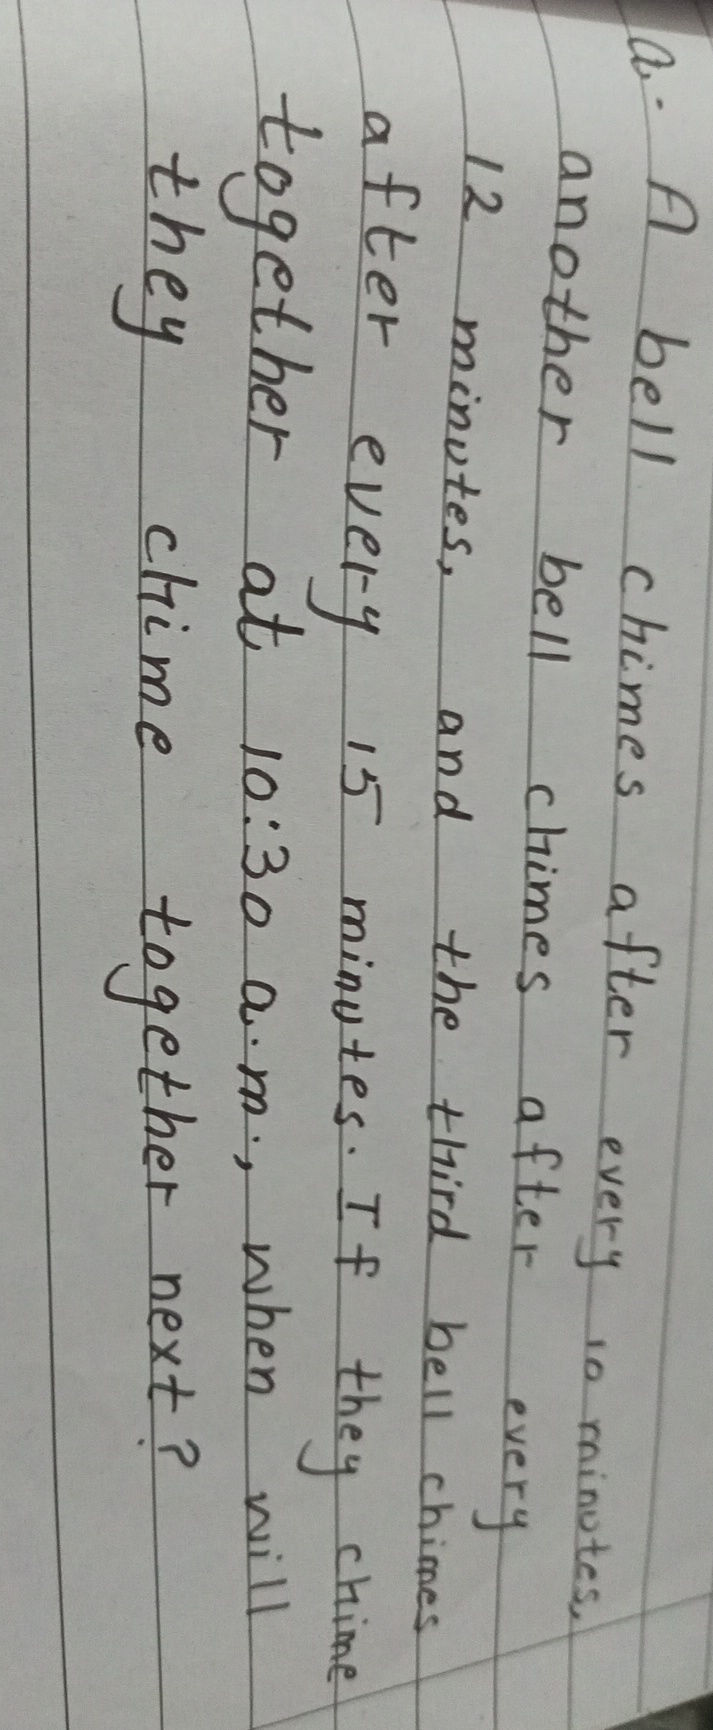 a. A bell chimes after every 10 minutes,
another bell chimes after every
12 minutes, and the third bell chimes
after every 15 minutes. If they chime
together at 10:30 a.m., when will
they chime together next?